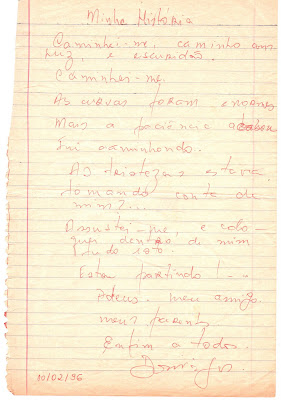 Minha História
Caminhei-me, caminho com
luz e escuridão.
Caminhei-me.
As curvas foram enormes
Mais a paciência acabou
Fui caminhando.
As tristezas estava
tomando conta de
mim?...
Assustei-me, e colo-
quei dentro de mim
tudo isto.
Estou partindo!...
Adeus. meu amigo.
meus parentes
Enfim a todos.
10/02/96